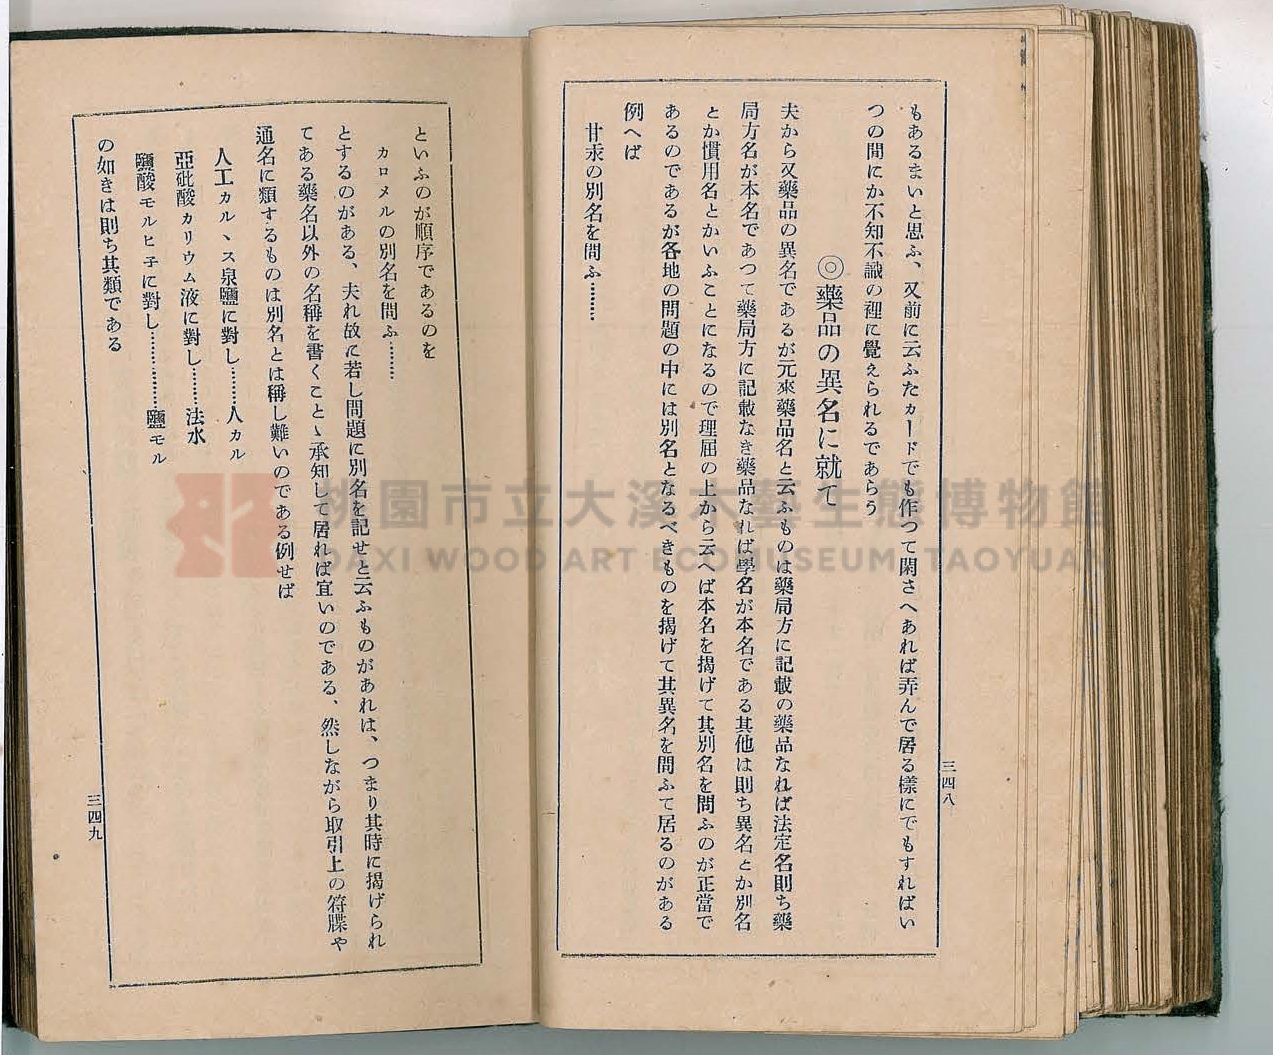 もあるまいと思ふ、又前に云ふたカードでも作つて閑さへあれば弄んで居る樣にでもすればい
つの間にか不知不識の裡に覺えられるであらう
◎藥品の異名に就て
夫から又藥品の異名であるが元來藥品名と云ふものは藥局方に記載の藥品なれば法定名則ち藥
局方名が本名であつて藥局方に記載なき藥品なれば學名が本名である其他は則ち異名とか別名
とか慣用名とかいふことになるので理屈の上から云へば本名を揭げて其別名を問ふのが正當で
あるのであるが各地の問題の中には別名となるべきものを揭げて其異名を問ふて居るのがある
例へば
甘汞の別名を問ふ………
三四八
といふのが順序であるのを
カロメルの別名を問ふ………
とするのがある、夫れ故に若し問題に別名を記せと云ふものがあれは、つまり其時に揭げられ
てある藥名以外の名稱を書くことゝ承知して居れば宜いのである、然しながら取引上の符牒や
通名に類するものは別名とは稱し難いのである例せば
人工カルヽス泉鹽に對し………人カル
亞砒酸カリウム液に對し………法水
鹽酸モルヒ子に對し…………鹽モル
の如きは則ち其類である
三四九
桃園市立大溪木藝生態博物館
DAXI WOOD ART ECOMUSEUM, TAOYUAN